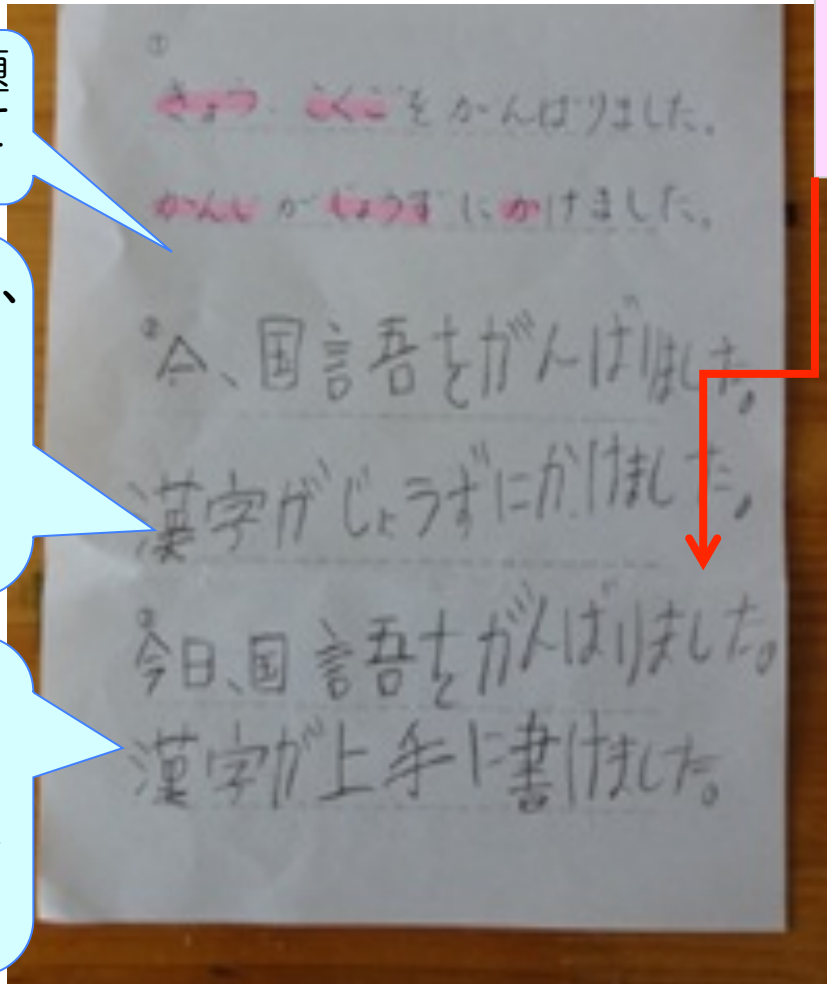 ①
きょう、こくごをがんばりました。
かんじがじょうずにかけました。
②
今、国語をがんばりました。
漢字がじょうずにかけました。
③
今日、国語をがんばりました。
漢字が上手に書けました。